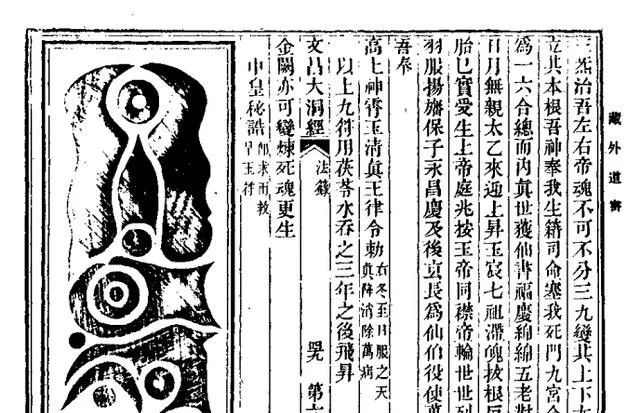 藏外道書
三炁治吾左右帝魂不可不分三九變其上下
立其本根吾神奉我生籍司命塞我死門九宮
爲一六合總而內眞世獲仙書福慶綿綿五老對
日月無親太乙來迎上昇玉宸七祖滯魄披根
胎已寶愛生上帝庭兆按玉帝同襟帝輪世世
羽服揚旛保子永昌慶及後𮧮長爲仙伯役使萬
吾辰
高上神霄玉清眞王律令勅右冬至日服之天眞降消除萬病
以上九符用茯苓水吞之三年之後飛昇
文昌大洞經 法籙 
金闕亦可變煉死魂更生
中皇秘誥